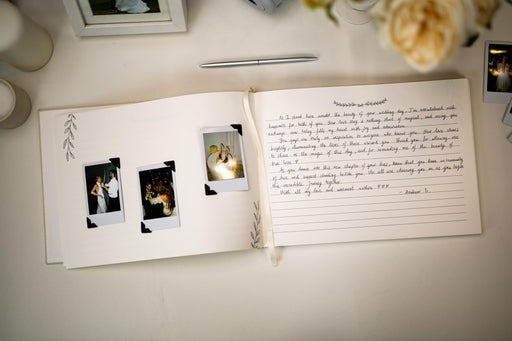 As I stand here amidst the beauty of your wedding day, I'm overwhelmed with
happiness for both of you. Your love story is nothing short of magical, and seeing you
exchange vows today fills my heart with joy and admiration.
You guys are truly an inspiration to everyone who knows you. Your love shines
brightly, illuminating the lives of those around you. Thank you for allowing me
to share in the magic of this day, and for reminding me of the beauty of
true love
As you embark into this new chapter of your lives, know that you have an community
of love and support standing behind you. We all are cheering you on as you begin
this incredible journey together.
With all my love and warmest wishes
- Andrew D.